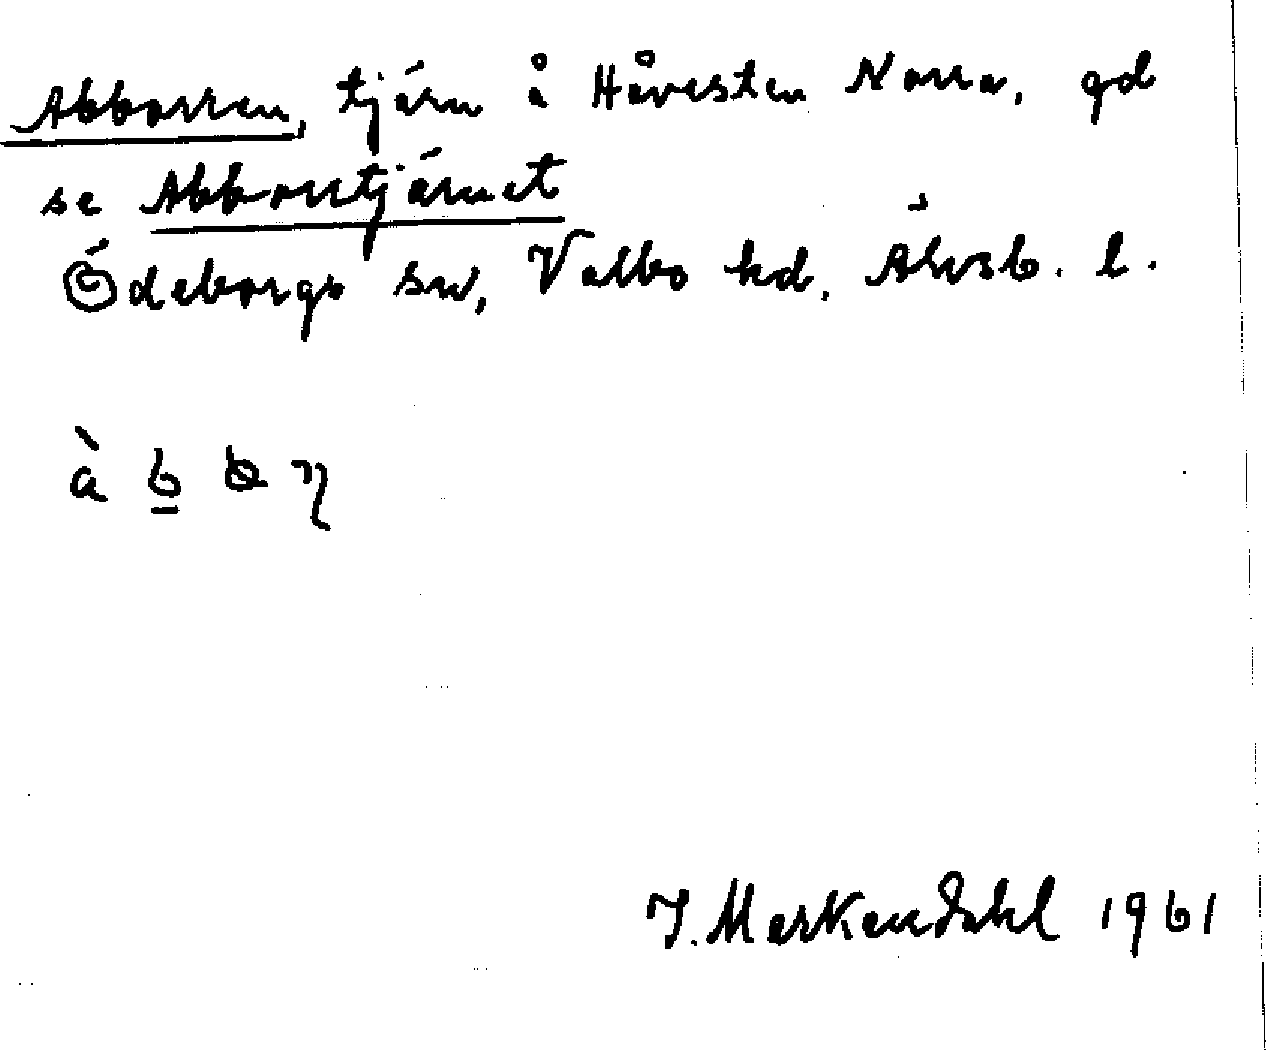 Abborren, tjärn å Håvesten Norra, gd
se Abborrtjärnet
Ödeborgs sn, Valbo hd. Älvsb. l.
J. Markendahl 1961